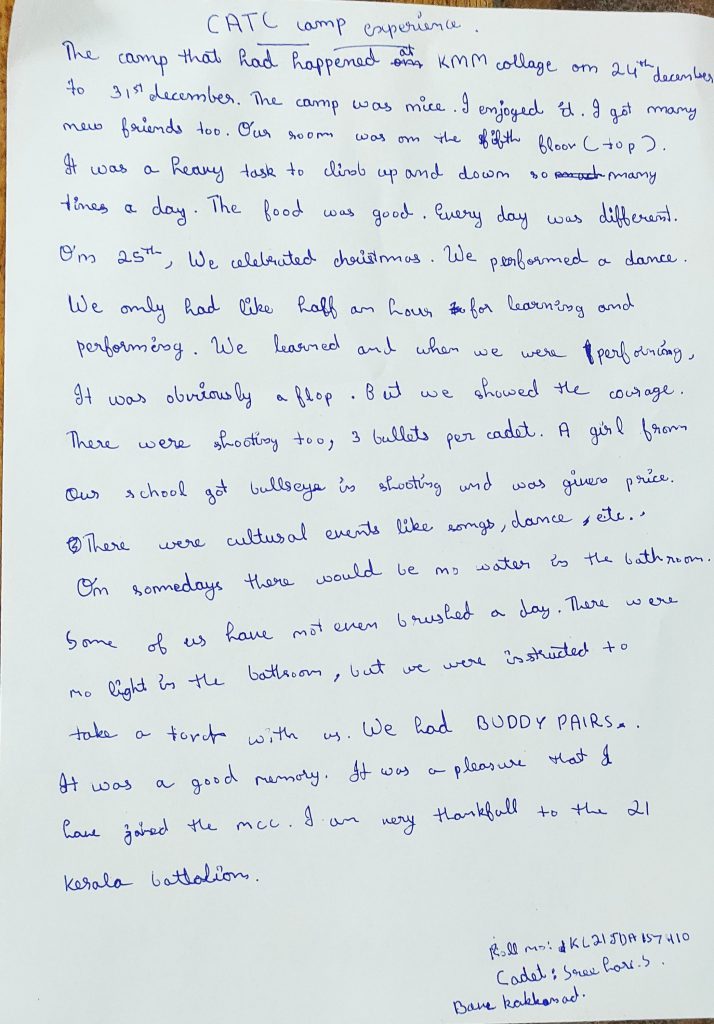 CATC camp experience.
The camp that had happened at KMM collage on 24th december
to 31st december. The camp was nice. I enjoyed it. I got many
new friends too. Our room was on the fifth floor (top).
It was a heavy task to climb up and down so many
times a day. The food was good. Every day was different.
On 25th, We celebrated christmas. We performed a dance.
We only had like half an hour for learning and
performing. We learned and when we were performing,
It was obviously a flop. But we showed the courage.
There were shooting too, 3 bullets per cadet. A girl from
Our school got bullseye in shooting and was given price.
There were cultural events like songs, dance, etc..
On somedays there would be no water in the bathroom.
Some of us have not even brushed a day. There were
no light in the bathroom, but we were instructed to
take a torch with us. We had BUDDY PAIRS.
It was a good memory. It was a pleasure that I
have joined the ncc. I am very thankfull to the 21
Kerala battalion.
Roll no: KL21JDA157410
Cadet: Sree hari.S.
Bave kakkanad.